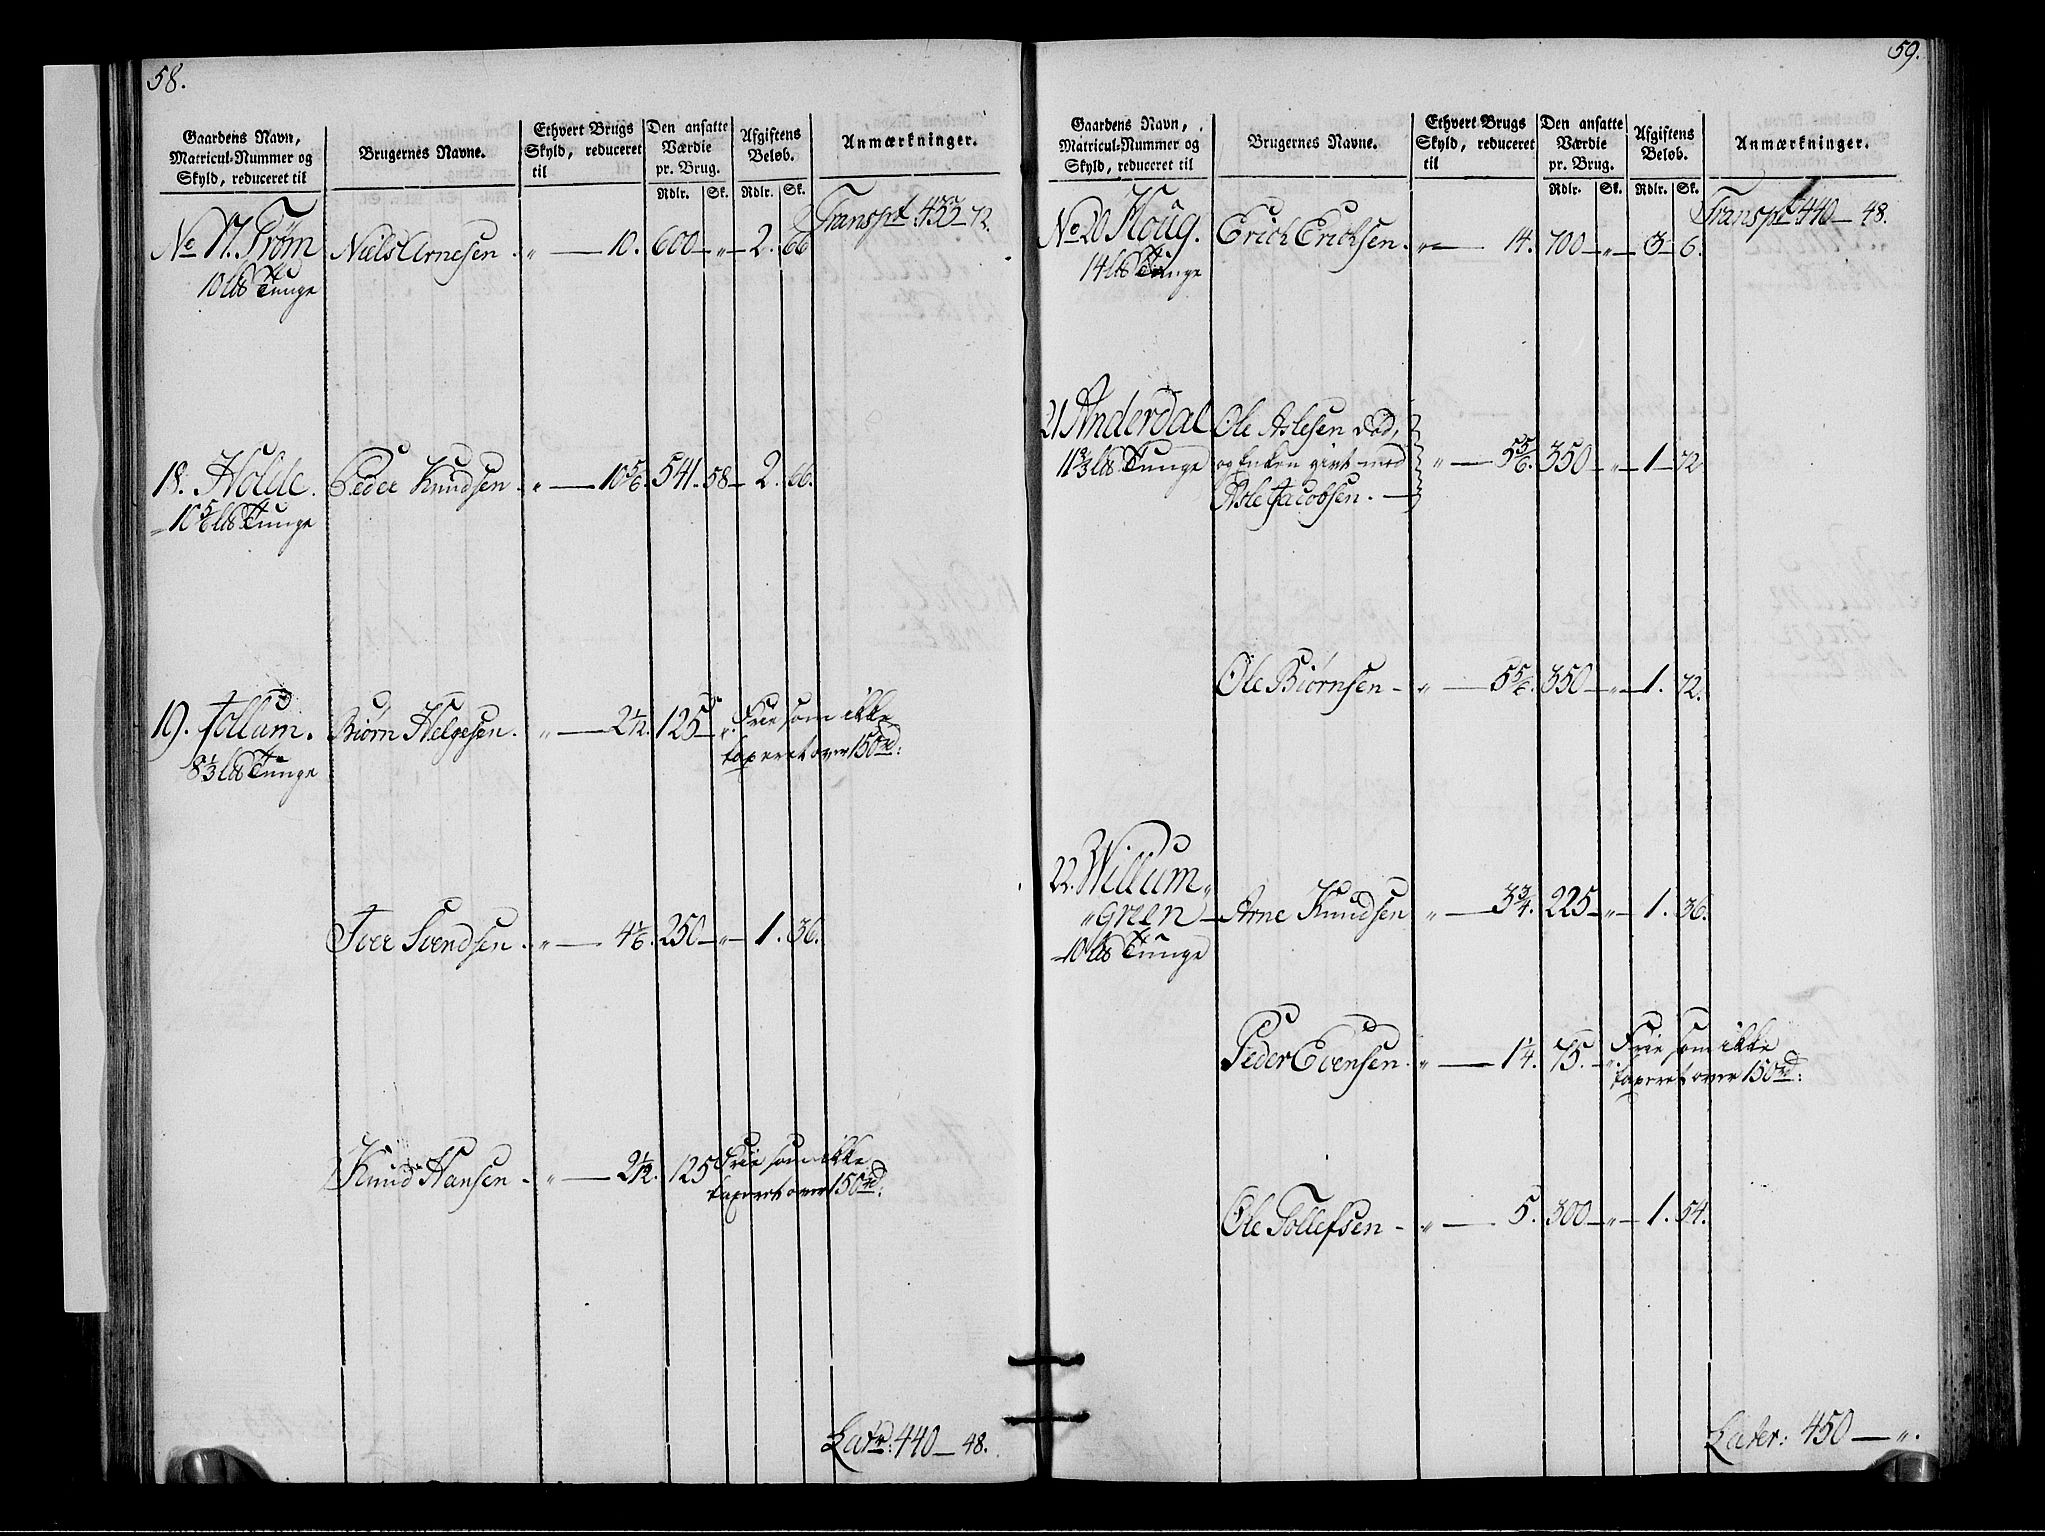 58.
Gaardens Navn, Matricul-Nummer og Skyld, reduceret til
Brugernes Navne.
Ethvert Brugs Skyld, reduceret til
Den ansatte Værdie pr. Brug.
Afgiftens Beløb.
Anmærkninger.
Rdlr. Sk. Rdlr. Sk.
Transpt 433 72.
No 17. Trøm Niels Arnesen „ — 10. 600 — „ — 2. 66
10 lb Tunge
18. Holde. Peder Knudsen „ — 10 5/6. 541. 58 — 2. 66.
10 5/6 lb Tunge
19. Jollum. Biørn Helgesen. „ — 2 1/12. 125 „ Frie som ikke
8 1/3 lb Tunge taxeret over 150 rd:
Iver Svendsen „ — 4 1/6. 250 — „ — 1. 36.
Knud Hansen „ — 2 1/12. 125 Frie som ikke
taxeret over 150 rd:
Latr: 440 — 48.
59.
Gaardens Navn, Matricul-Nummer og Skyld, reduceret til
Brugernes Navne.
Ethvert Brugs Skyld, reduceret til
Den ansatte Værdie pr. Brug.
Afgiftens Beløb.
Anmærkninger.
Rdlr. Sk. Rdlr. Sk.
Transpt 440 — 48.
No 20 Houg. Erich Erichsen. „ — 14. 700 — „ — 3 — 6.
14 lb Tunge
21 Anderdal Ole Aslesen død,
11 2/3 lb Tunge og Enken givt med „ — 5 5/6. 350 „ — 1 — 72
Asle Jacobsen. —
Ole Biørnsen — „ — 5 5/6. 350 — „ — 1. 72.
22. Willum„
„green — Arne Knudsen „ — 3 3/4. 225 — „ — 1. 36.
10 lb Tunge
Peder Evensen. „ — 1 1/4. 75. „ Frie som ikke
taxeret over 150 rd:
Ole Tollefsen — „ — 5. 300 — „ — 1. 54.
Later: 450 — „.